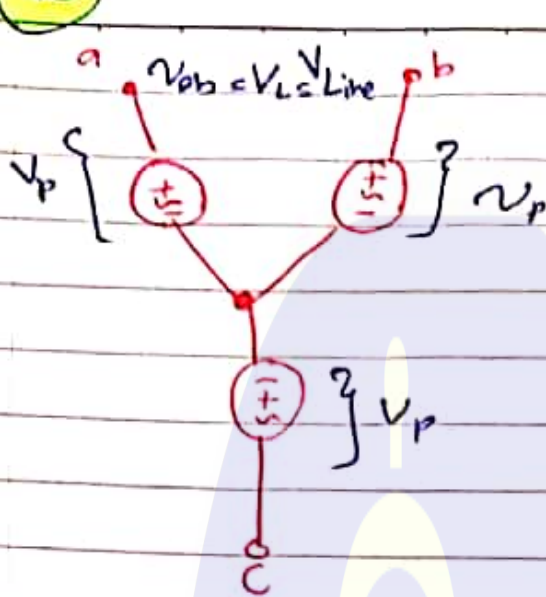 a
b
Vab = VL = VLine
Vp
+
-
+
-
Vp
-
+
Vp
C